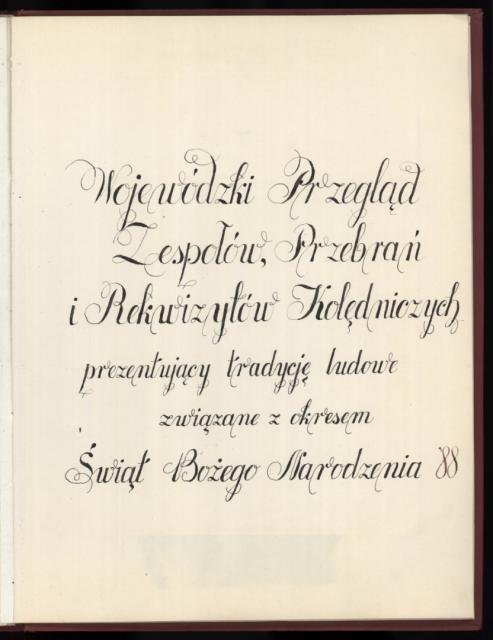 Wojewódzki Przegląd
Zespołów, Przebrań
i Rekwizytów Kolędniczych
prezentujący tradycję ludowe
związane z okresem
Świąt Bożego Narodzenia 88